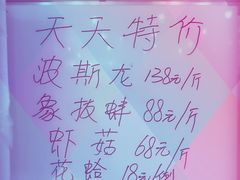 天天特价
波斯龙 138元/斤
象拔蚌 88元/斤
虾菇 68元/斤
花蛤 18元/例